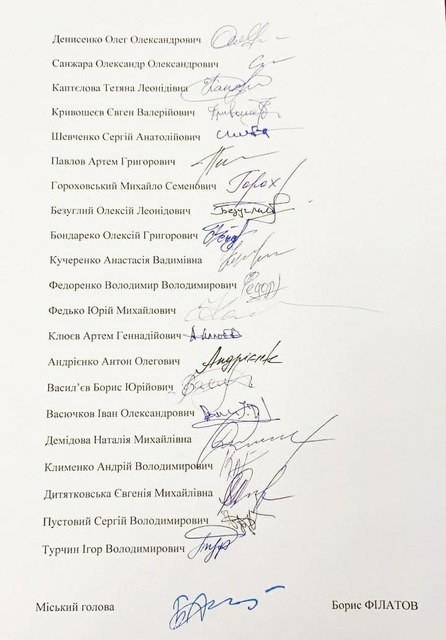 Денисенко Олег Олександрович
Санжара Олександр Олександрович
Каптєлова Тетяна Леонідівна
Кривошеєв Євген Валерійович
Шевченко Сергій Анатолійович
Павлов Артем Григорович
Гороховський Михайло Семенович Горох
Безуглий Олексій Леонідович Безуглий
Бондареко Олексій Григорович
Кучеренко Анастасія Вадимівна
Федоренко Володимир Володимирович
Федько Юрій Михайлович
Клюєв Артем Геннадійович
Андрієнко Антон Олегович Андрієнк
Васил’єв Борис Юрійович
Васючков Іван Олександрович
Демідова Наталія Михайлівна
Клименко Андрій Володимирович
Дитятковська Євгенія Михайлівна
Пустовий Сергій Володимирович
Турчин Ігор Володимирович
Міський голова Борис ФІЛАТОВ